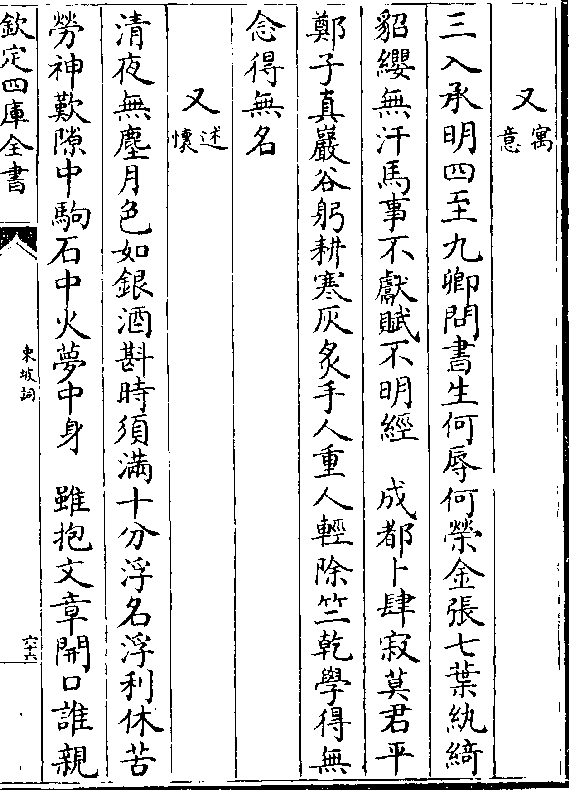 又寓意
三入承明四至九卿問書生何辱何榮金張七葉紈綺
貂纓無汗馬事不獻賦不明經　成都卜肆寂莫君平
鄭子真巖谷躬耕寒灰炙手人重人輕除竺乾學得無
念得無名
又述懷
清夜無塵月色如銀酒斟時須滿十分浮名浮利休苦
勞神歎隙中駒石中火夢中身　雖抱文章開口誰親
欽定四庫全書
東坡詞
六十六